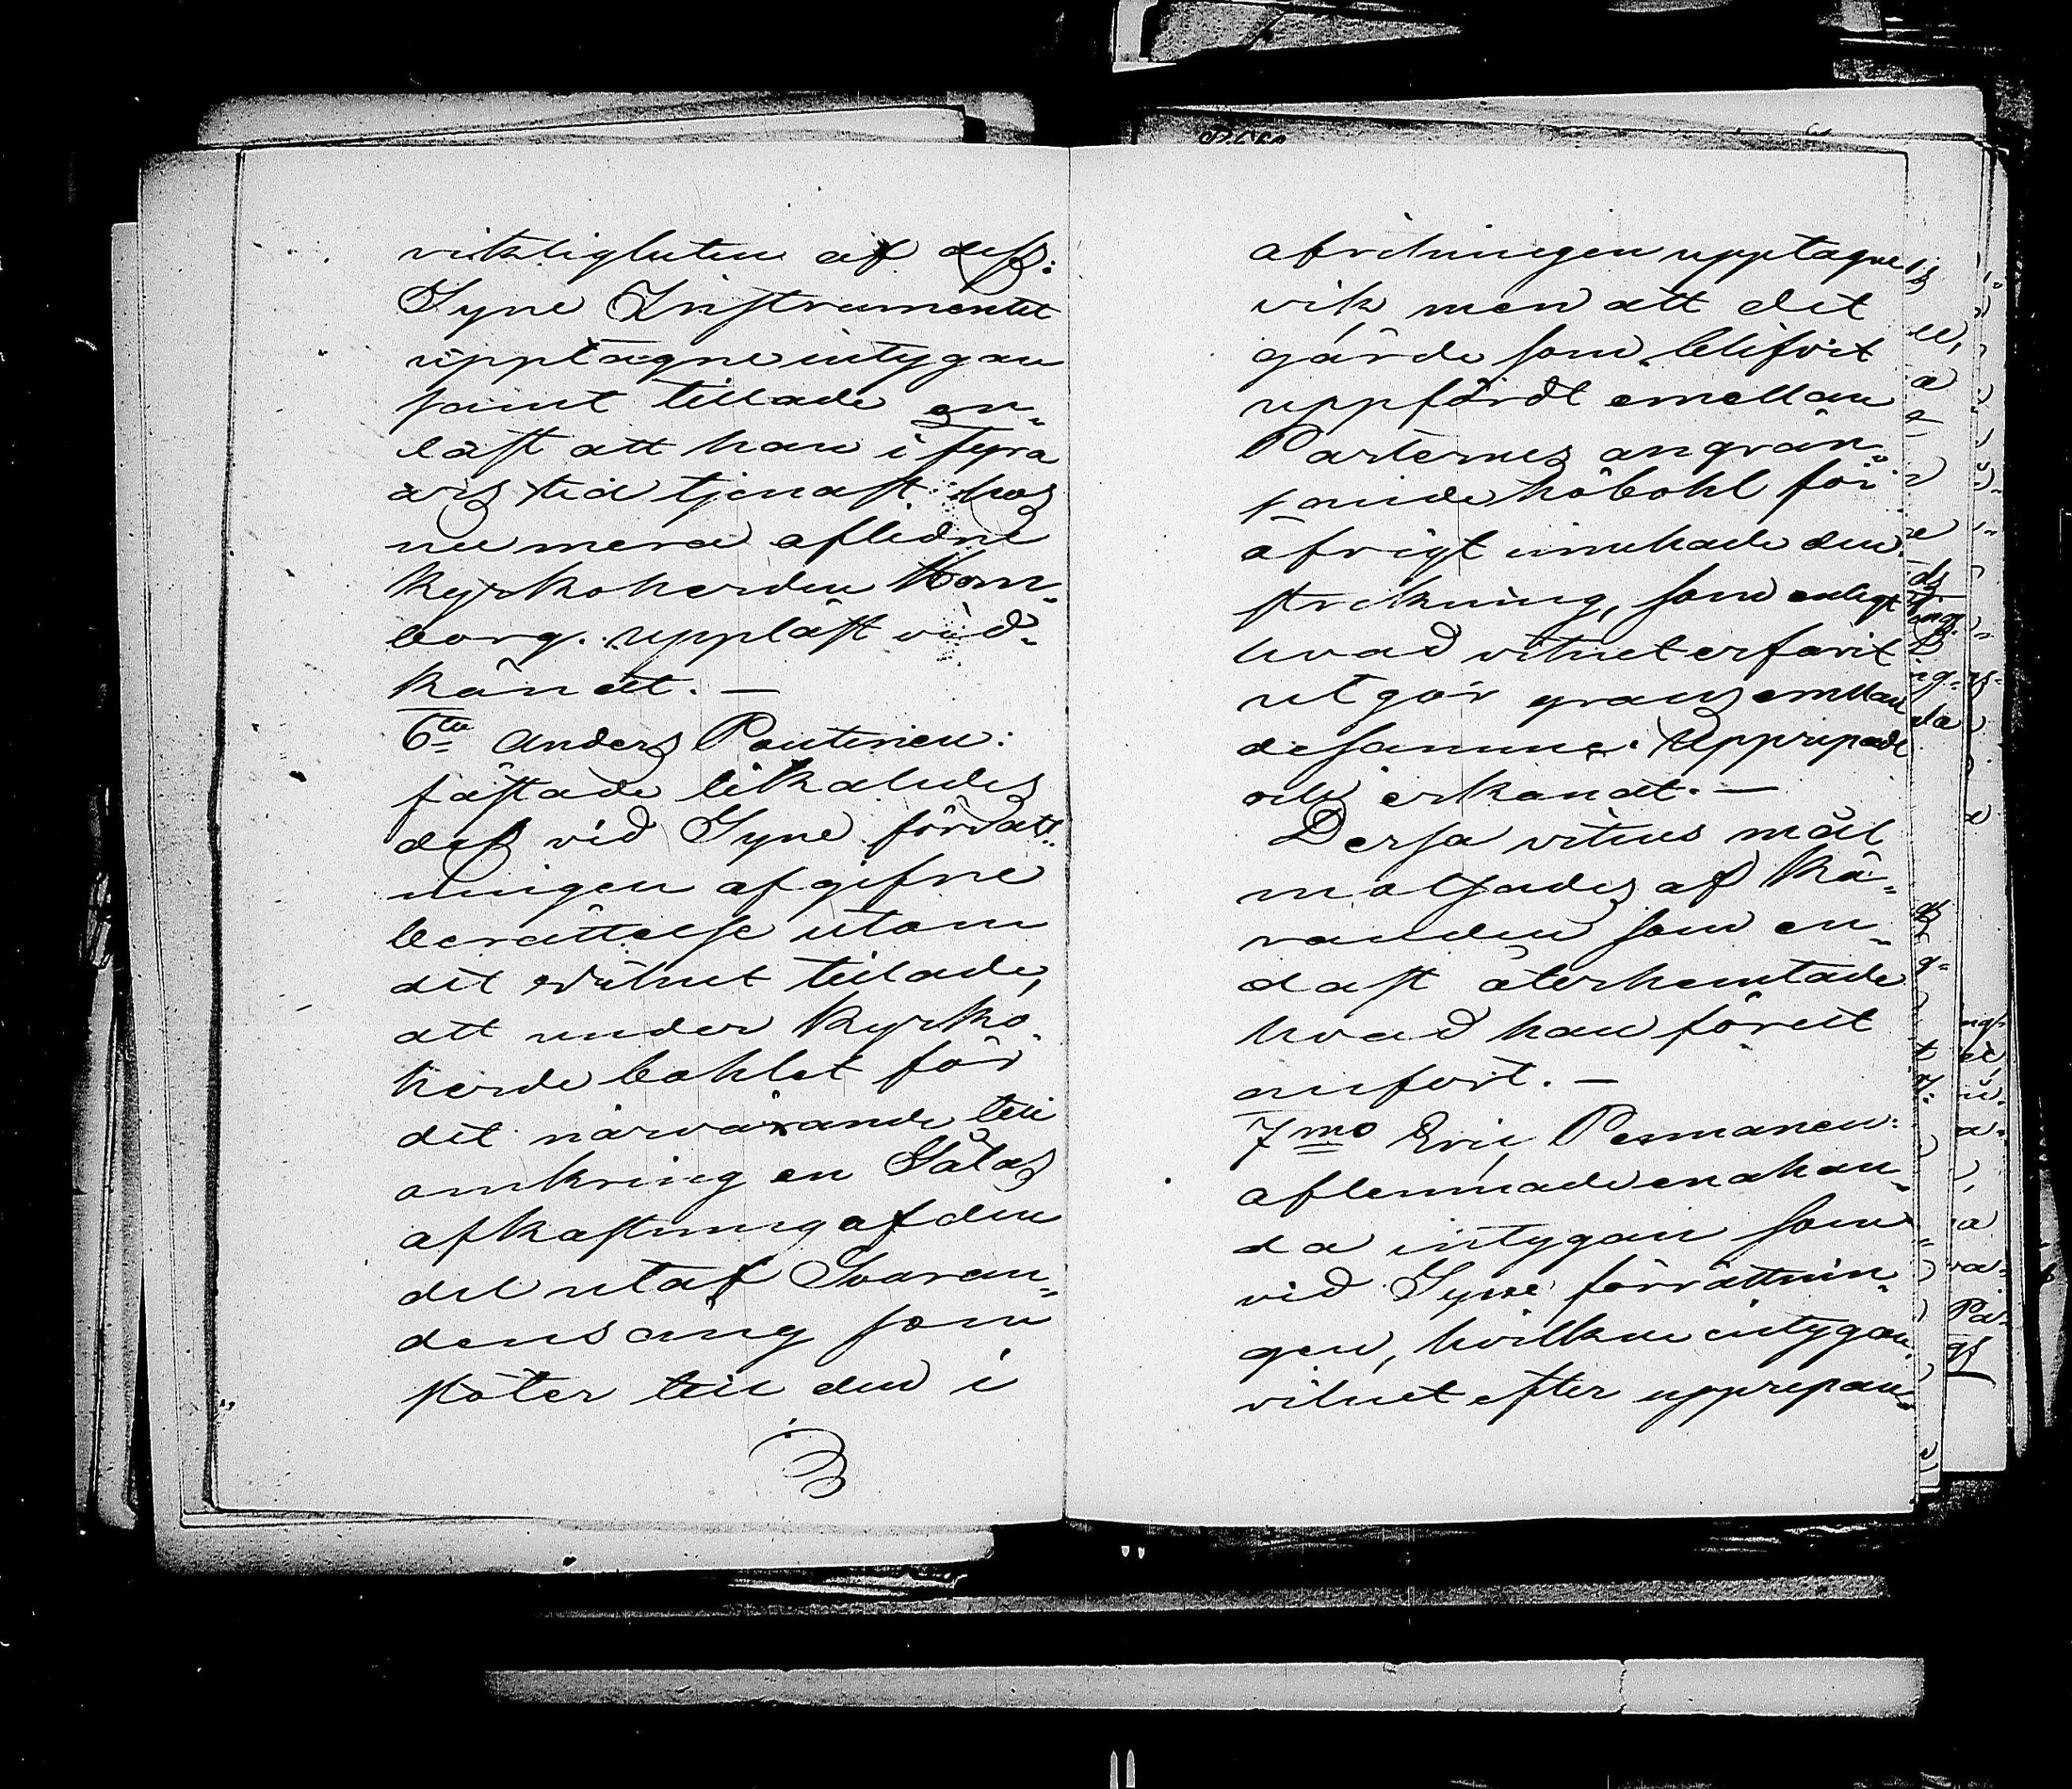 riktigheten af dess
Syne Instrumentet
upptagne intygan
samt tillade en-
dast att han i fyra
års tid tjenast hos
nu mera aflidne
Kyrkoherden Hom-
borg. uppläst vid-
kändt. —
6to Anders Pontinen:
fästade likaledes
dess vid Syne förrätt-
ningen afgifne
berättelse utom
det vitnet tillade,
att under Kyrko-
herde bohlet för
det närvarande till
omkring en Sålas
afkastning af den
del utaf Svaran-
dens äng som
stöter till den i
afritningen upptagne
vik men att det
gärde som blifvit
uppfördt emellan
Parternes angrän-
sande höbohl för
öfrigt innehade den
sträckning, som enligt
hvad vitnet erfarit
utgör gräns emellan
desamme. Upprepade
och erkändt. —
Dessa vitnes mål
motsades af Kä-
randen som en-
dast återhemtade
hvad han förut
anfört. —
7mo Eric Pesmanen:
aflemnade enahan-
da intygan som
vid Syne förrättnin-
gen, hvilkne intygan
vitnet efter upprepan-